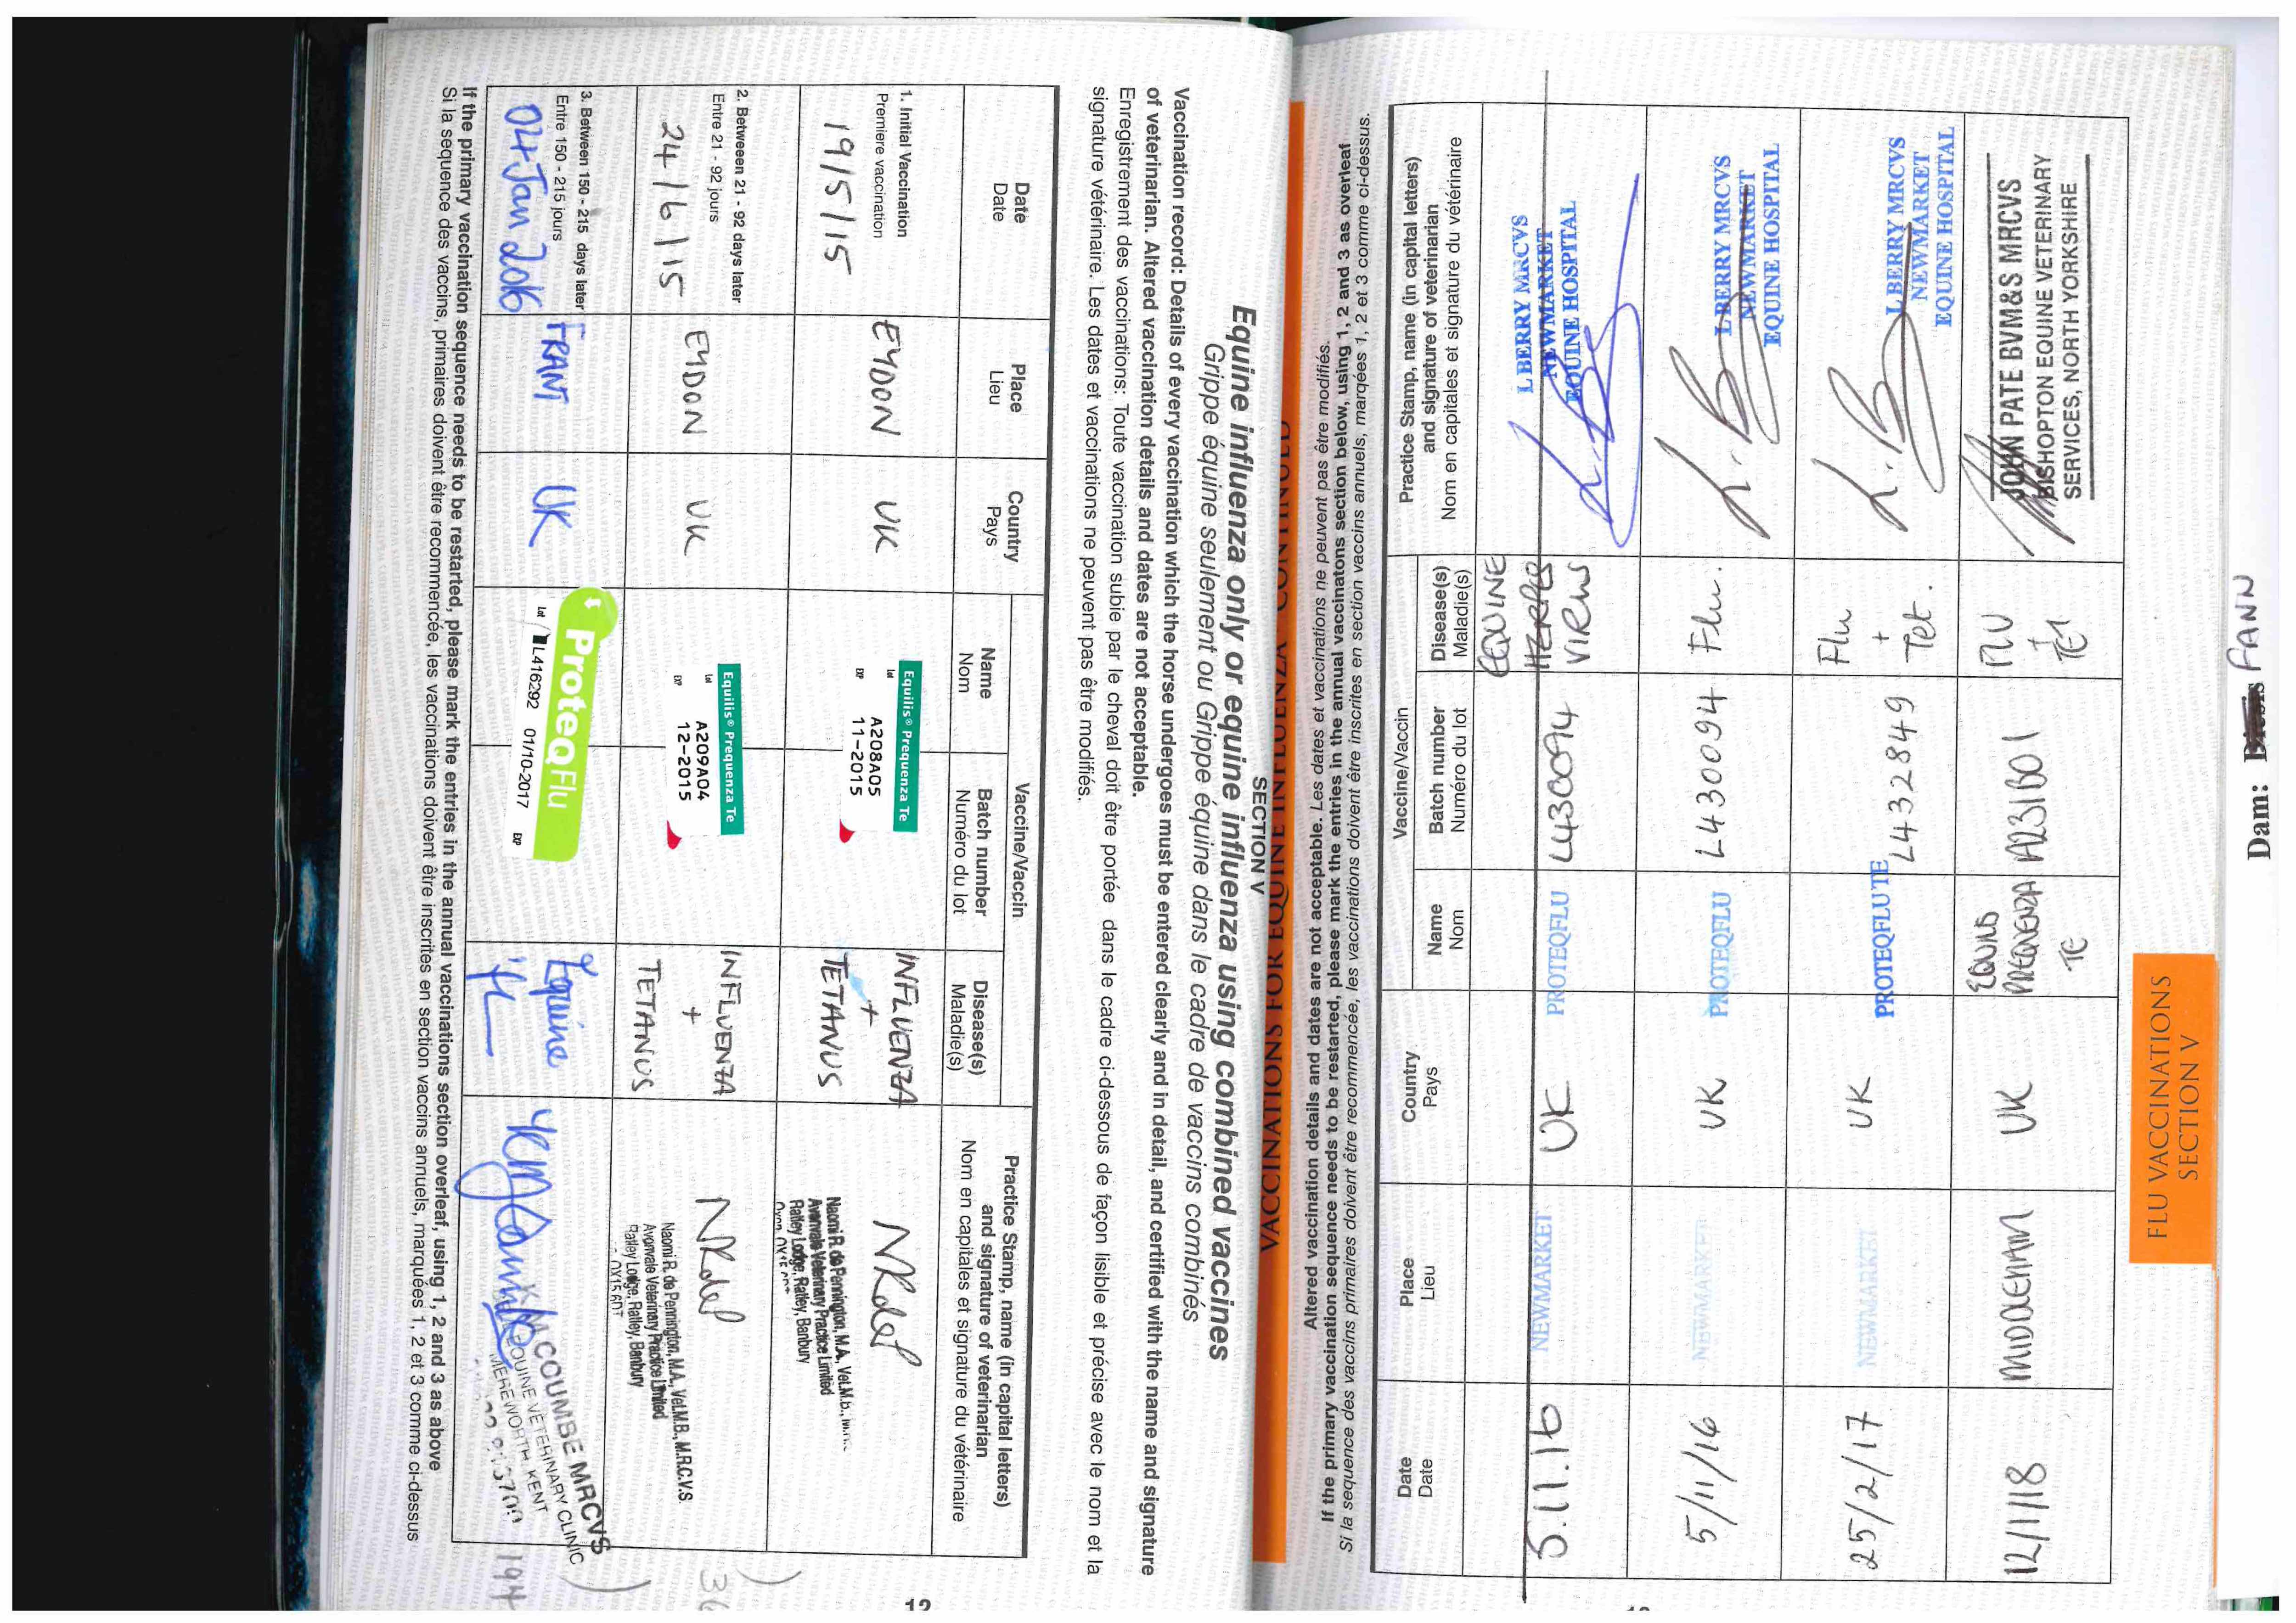 SECTION V
Equine influenza only or equine influenza using combined vaccines
Grippe équine seulement ou Grippe équine dans le cadre de vaccins combinés
Vaccination record: Details of every vaccination which the horse undergoes must be entered clearly and in detail, and certified with the name and signature
of veterinarian. Altered vaccination details and dates are not acceptable.
Enregistrement des vaccinations: Toute vaccination subie par le cheval doit être portée dans le cadre ci-dessous de façon lisible et précise avec le nom et la
signature vétérinaire. Les dates et vaccinations ne peuvent pas être modifiés.
Date
Date
Place
Lieu
Country
Pays
Vaccine/Vaccin
Name
Nom
Batch number
Numéro du lot
Disease(s)
Maladie(s)
Practice Stamp, name (in capital letters)
and signature of veterinarian
Nom en capitales et signature du vétérinaire
1. Initial Vaccination
Premiere vaccination
19/5/15
EYDON
UK
Equilis® Prequenza Te
Lot
A208A05
EXP
11-2015
INFLUENZA
+
TETANUS
NRdeP
Naomi R. de Pennington, M.A., Vet.M.b.,
Avonvale Veterinary Practice Limited
Ratley Lodge, Ratley, Banbury
2. Betweeen 21 - 92 days later
Entre 21 - 92 jours
24/6/15
EYDON
UK
Equilis® Prequenza Te
Lot
A209A04
EXP
12-2015
INFLUENZA
+
TETANUS
NRdeP
Naomi R. de Pennington, M.A., Vet.M.B., M.R.C.V.S.
Avonvale Veterinary Practice Limited
Ratley Lodge, Ratley, Banbury
3. Between 150 - 215 days later
Entre 150 - 215 jours
04 Jan 2016
FRANT
UK
ProteqFlu
Lot
L416292 01/10-2017 EXP
Equine
'flu
COUMBE MRCVS
EQUINE VETERINARY CLINIC
MEREWORTH, KENT
194
If the primary vaccination sequence needs to be restarted, please mark the entries in the annual vaccinations section overleaf, using 1, 2 and 3 as above
Si la sequence des vaccins, primaires doivent être recommencée, les vaccinations doivent être inscrites en section vaccins annuels, marquées 1, 2 et 3 comme ci-dessus
12
Dam: FANN
FLU VACCINATIONS
SECTION V
VACCINATIONS FOR EQUINE INFLUENZA CONTINUED
Altered vaccination details and dates are not acceptable. Les dates et vaccinations ne peuvent pas être modifiés.
If the primary vaccination sequence needs to be restarted, please mark the entries in the annual vaccinatons section below, using 1, 2 and 3 as overleaf
Si la sequence des vaccins primaires doivent être recommencée, les vaccinations doivent être inscrites en section vaccins annuels, marqées 1, 2 et 3 comme ci-dessus.
Date
Date
Place
Lieu
Country
Pays
Vaccine/Vaccin
Name
Nom
Batch number
Numéro du lot
Diseases(s)
Maladie(s)
Practice Stamp, name (in capital letters)
and signature of veterinarian
Nom en capitales et signature du vétérinaire
5.11.16
NEWMARKET
UK
PROTEQFLU
L430094
EQUINE
HERPES
VIRUS
L BERRY MRCVS
NEWMARKET
EQUINE HOSPITAL
5/11/16
NEWMARKET
UK
PROTEQFLU
L430094
Flu.
L BERRY MRCVS
NEWMARKET
EQUINE HOSPITAL
25/2/17
NEWMARKET
UK
PROTEQFLU TE
L432849
Flu
+
Tet.
L BERRY MRCVS
NEWMARKET
EQUINE HOSPITAL
12/1/18
MIDDLEHAM
UK
EQUILIS
PREQUENZA
TE
A231B01
FLU
+
TET
JOHN PATE BVM&S MRCVS
BISHOPTON EQUINE VETERINARY
SERVICES, NORTH YORKSHIRE